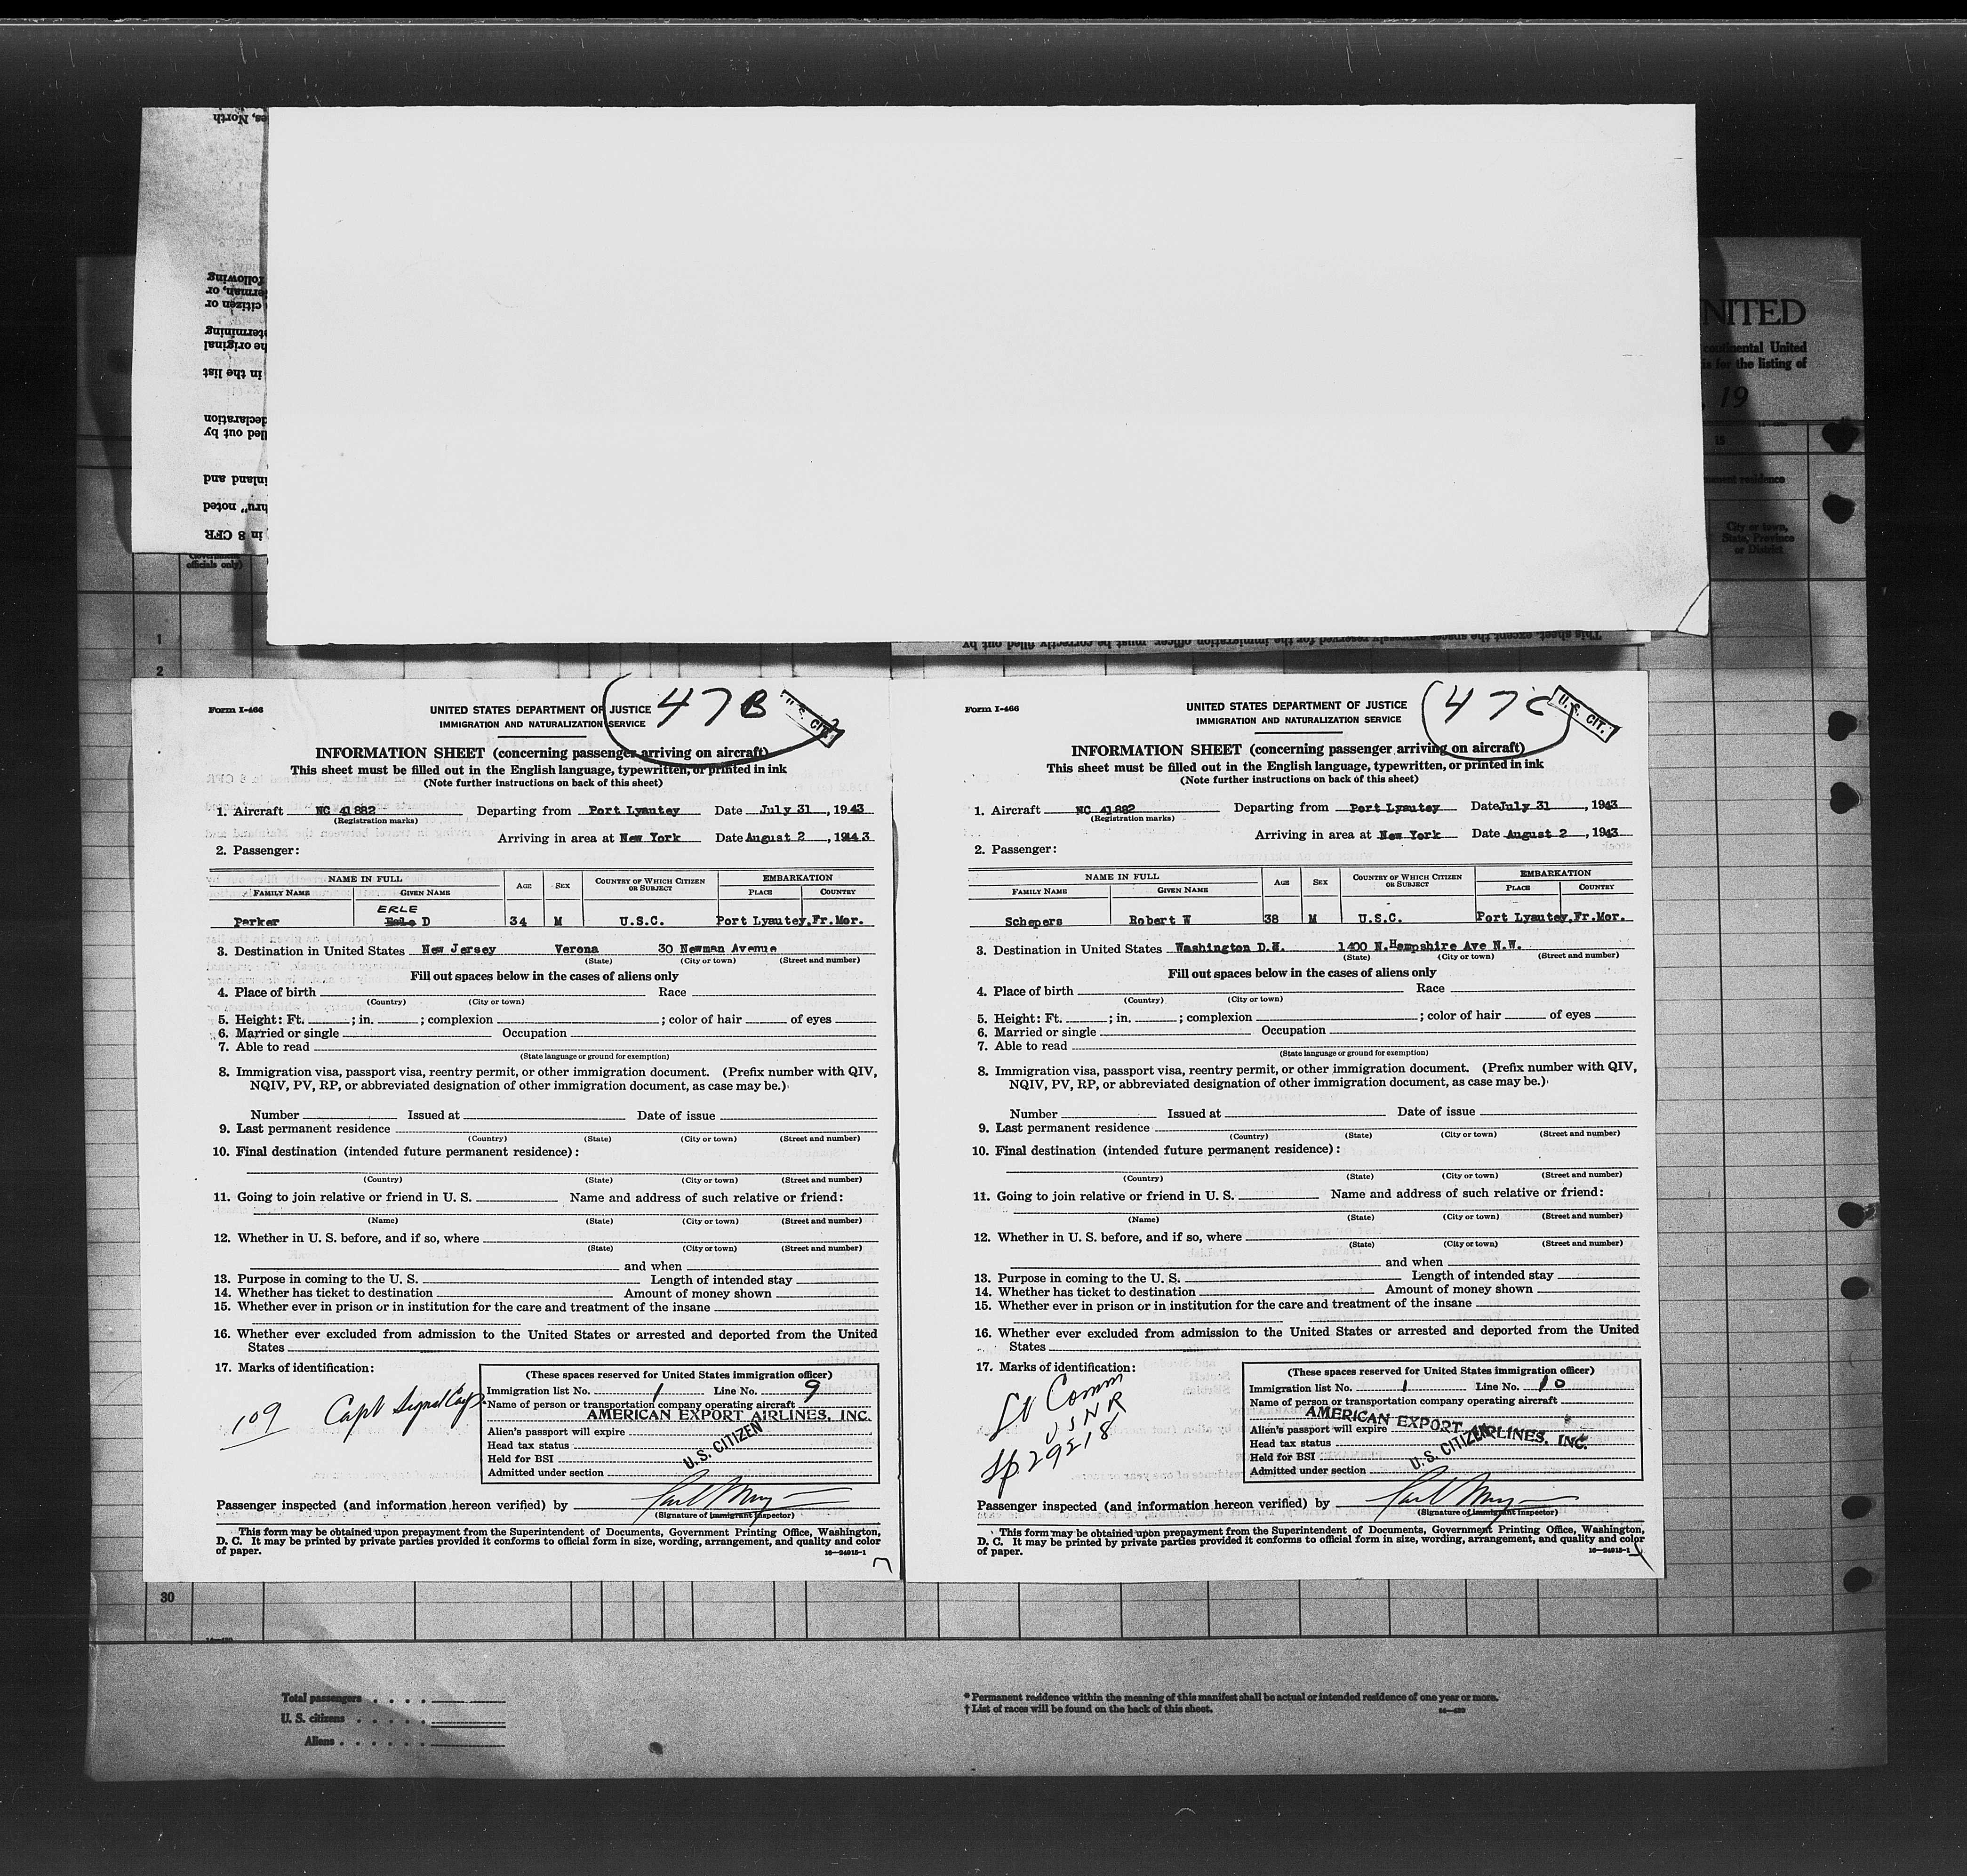 es, North
following
erman, or
citizen or
termining
he original
in the list
declaration
lled out by
inland and
hru" noted
in 8 CFR
officials only)
NITED
continental United
is for the listing of
, 19
15
City or town,
State, Province
or District
1
2
This sheet, except the spaces expressly reserved for the immigration officer, must be correctly filled out by
Form I-466
47B
U.S. CIT.
UNITED STATES DEPARTMENT OF JUSTICE
IMMIGRATION AND NATURALIZATION SERVICE
INFORMATION SHEET (concerning passenger arriving on aircraft)
This sheet must be filled out in the English language, typewritten, or printed in ink
(Note further instructions on back of this sheet)
1. Aircraft NC 41882 Departing from Port Lyautey Date July 31, 1943
(Registration marks)
Arriving in area at New York Date August 2, 1943
2. Passenger:
NAME IN FULL AGE SEX COUNTRY OF WHICH CITIZEN OR SUBJECT EMBARKATION
FAMILY NAME GIVEN NAME PLACE COUNTRY
ERLE
Parker D 34 M U.S.C. Port Lyautey, Fr.Mor.
3. Destination in United States New Jersey Verona 30 Newman Avenue
(State) (City or town) (Street and number)
Fill out spaces below in the cases of aliens only
4. Place of birth Race
(Country) (City or town)
5. Height: Ft. ; in. ; complexion ; color of hair of eyes
6. Married or single Occupation
7. Able to read
(State language or ground for exemption)
8. Immigration visa, passport visa, reentry permit, or other immigration document. (Prefix number with QIV,
NQIV, PV, RP, or abbreviated designation of other immigration document, as case may be.)
Number Issued at Date of issue
9. Last permanent residence
(Country) (State) (City or town) (Street and number)
10. Final destination (intended future permanent residence):
(Country) (State) (City or town) (Street and number)
11. Going to join relative or friend in U. S. Name and address of such relative or friend:
(Name) (State) (City or town) (Street and number)
12. Whether in U. S. before, and if so, where
(State) (City or town) (Street and number)
and when
13. Purpose in coming to the U. S. Length of intended stay
14. Whether has ticket to destination Amount of money shown
15. Whether ever in prison or in institution for the care and treatment of the insane
16. Whether ever excluded from admission to the United States or arrested and deported from the United
States
17. Marks of identification:
109 Capt Signal Corps
(These spaces reserved for United States immigration officer)
Immigration list No. 1 Line No. 9
Name of person or transportation company operating aircraft
AMERICAN EXPORT AIRLINES, INC.
Alien's passport will expire
Head tax status
Held for BSI
Admitted under section
U.S. CITIZEN
Passenger inspected (and information hereon verified) by
(Signature of immigrant inspector)
This form may be obtained upon prepayment from the Superintendent of Documents, Government Printing Office, Washington,
D. C. It may be printed by private parties provided it conforms to official form in size, wording, arrangement, and quality and color
of paper. 16—24915-1
Form I-466
47C
U.S. CIT.
UNITED STATES DEPARTMENT OF JUSTICE
IMMIGRATION AND NATURALIZATION SERVICE
INFORMATION SHEET (concerning passenger arriving on aircraft)
This sheet must be filled out in the English language, typewritten, or printed in ink
(Note further instructions on back of this sheet)
1. Aircraft NC 41882 Departing from Port Lyautey Date July 31, 1943
(Registration marks)
Arriving in area at New York Date August 2, 1943
2. Passenger:
NAME IN FULL AGE SEX COUNTRY OF WHICH CITIZEN OR SUBJECT EMBARKATION
FAMILY NAME GIVEN NAME PLACE COUNTRY
Schepers Robert W 38 M U.S.C. Port Lyautey, Fr.Mor.
3. Destination in United States Washington 1400 N.Hampshire Ave N.W.
(State) (City or town) (Street and number)
Fill out spaces below in the cases of aliens only
4. Place of birth Race
(Country) (City or town)
5. Height: Ft. ; in. ; complexion ; color of hair of eyes
6. Married or single Occupation
7. Able to read
(State language or ground for exemption)
8. Immigration visa, passport visa, reentry permit, or other immigration document. (Prefix number with QIV,
NQIV, PV, RP, or abbreviated designation of other immigration document, as case may be.)
Number Issued at Date of issue
9. Last permanent residence
(Country) (State) (City or town) (Street and number)
10. Final destination (intended future permanent residence):
(Country) (State) (City or town) (Street and number)
11. Going to join relative or friend in U. S. Name and address of such relative or friend:
(Name) (State) (City or town) (Street and number)
12. Whether in U. S. before, and if so, where
(State) (City or town) (Street and number)
and when
13. Purpose in coming to the U. S. Length of intended stay
14. Whether has ticket to destination Amount of money shown
15. Whether ever in prison or in institution for the care and treatment of the insane
16. Whether ever excluded from admission to the United States or arrested and deported from the United
States
17. Marks of identification:
Lt Comm
USNR
(These spaces reserved for United States immigration officer)
Immigration list No. 1 Line No. 10
Name of person or transportation company operating aircraft
AMERICAN EXPORT AIRLINES, INC.
Alien's passport will expire
Head tax status
Held for BSI
Admitted under section
U.S. CITIZEN
Passenger inspected (and information hereon verified) by
(Signature of immigrant inspector)
This form may be obtained upon prepayment from the Superintendent of Documents, Government Printing Office, Washington,
D. C. It may be printed by private parties provided it conforms to official form in size, wording, arrangement, and quality and color
of paper. 16—24915-1
30
Total passengers
U. S. citizens
Aliens
* Permanent residence within the meaning of this manifest shall be actual or intended residence of one year or more.
† List of races will be found on the back of this sheet.